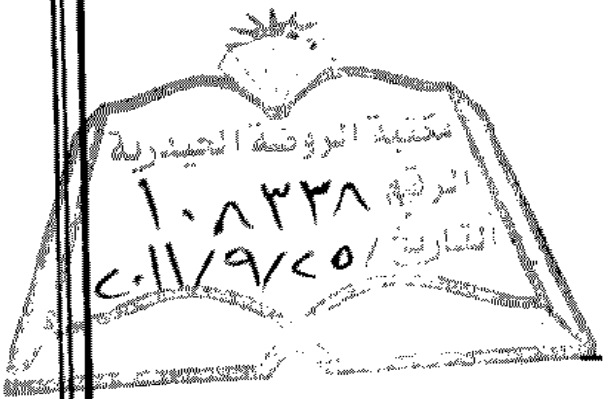 مكتبة الروضة الحيدرية
الرقم ١٠٨٣٣٨
التاريخ / ٢٥/٩/٢٠١١